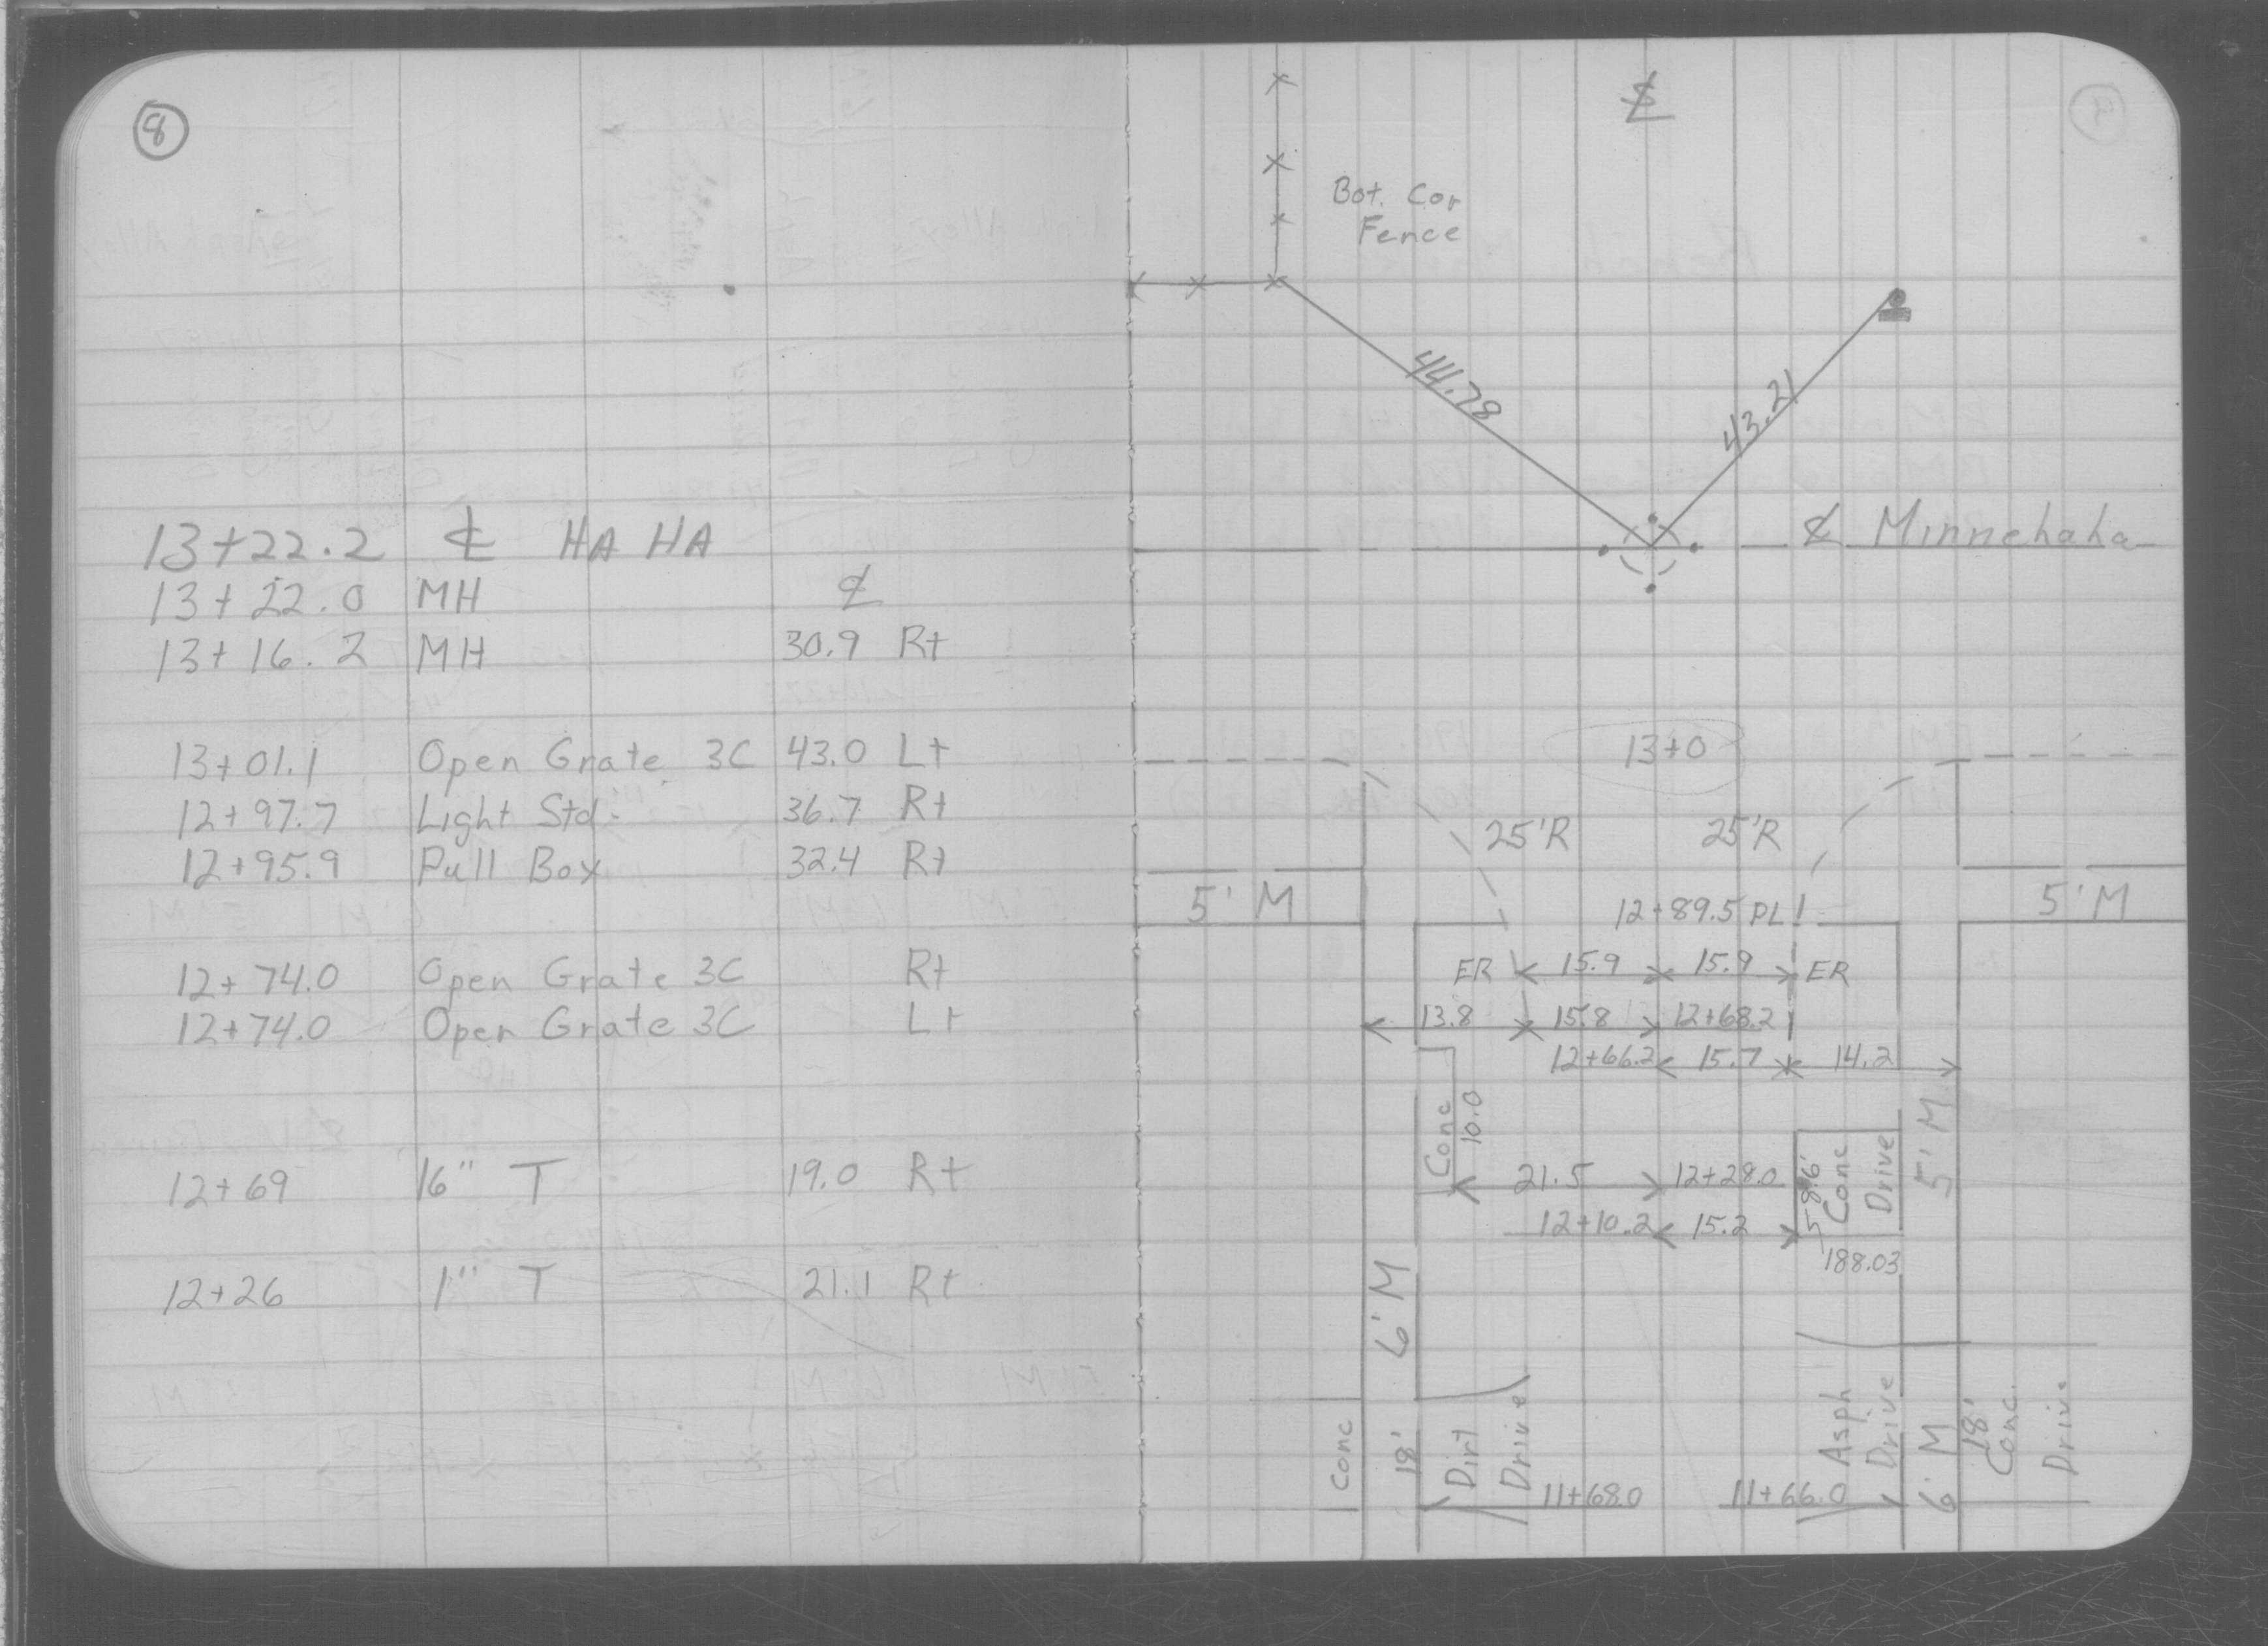 8
13+22.2 ℄ HA HA
13+22.0 MH ℄
13+16.2 MH 30.9 Rt
13+01.1 Open Grate 3C 43.0 Lt
12+97.7 Light Std. 36.7 Rt
12+95.9 Pull Box 32.4 Rt
12+74.0 Open Grate 3C Rt
12+74.0 Open Grate 3C Lt
12+69 16" T 19.0 Rt
12+26 1" T 21.1 Rt
℄
Bot. Cor
Fence
44.78
43.21
℄ Minnehaha
13+0
25'R 25'R
5' M
12+89.5 PL
5' M
ER 15.9 15.9 ER
13.8 15.8 12+68.2
12+66.2 15.7 14.2
Conc
10.0
21.5 12+28.0
12+10.2 15.2
Conc
Drive
188.03
5' M
6' M
Conc
18'
Dirt
Drive
11+68.0
11+66.0
Asph
Drive
6' M
18'
Conc.
Drive